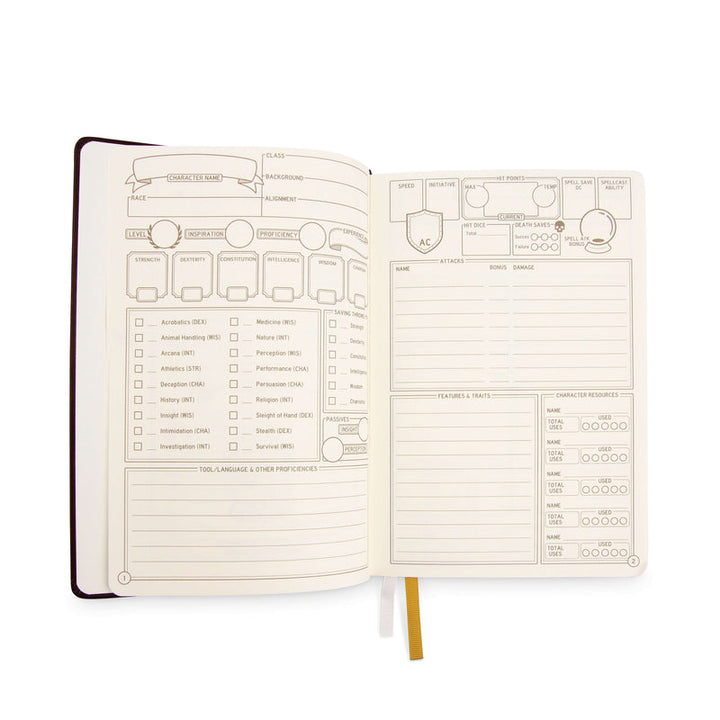 CHARACTER NAME
CLASS
BACKGROUND
RACE
ALIGNMENT
LEVEL
INSPIRATION
PROFICIENCY
STRENGTH
DEXTERITY
CONSTITUTION
INTELLIGENCE
WISDOM
Acrobatics (DEX)
Animal Handling (WIS)
Arcana (INT)
Athletics (STR)
Deception (CHA)
History (INT)
Insight (WIS)
Intimidation (CHA)
Investigation (INT)
Medicine (WIS)
Nature (INT)
Perception (WIS)
Performance (CHA)
Persuasion (CHA)
Religion (INT)
Sleight of Hand (DEX)
Stealth (DEX)
Survival (WIS)
SAVING
Strength
Dexterity
Wisdom
PASSIVES
INSIGHT
PERCEPTION
TOOL/LANGUAGE & OTHER PROFICIENCIES
1
SPEED
INITIATIVE
HIT POINTS
MAX
TEMP
CURRENT
SPELL SAVE DC
SPELLCAST ABILITY
AC
HIT DICE
Total
DEATH SAVES
Succes
Failure
SPELL ATK BONUS
ATTACKS
NAME BONUS DAMAGE
FEATURES & TRAITS
CHARACTER RESOURCES
NAME
TOTAL USES
USED
NAME
TOTAL USES
USED
NAME
TOTAL USES
USED
NAME
TOTAL USES
USED
NAME
TOTAL USES
USED
2